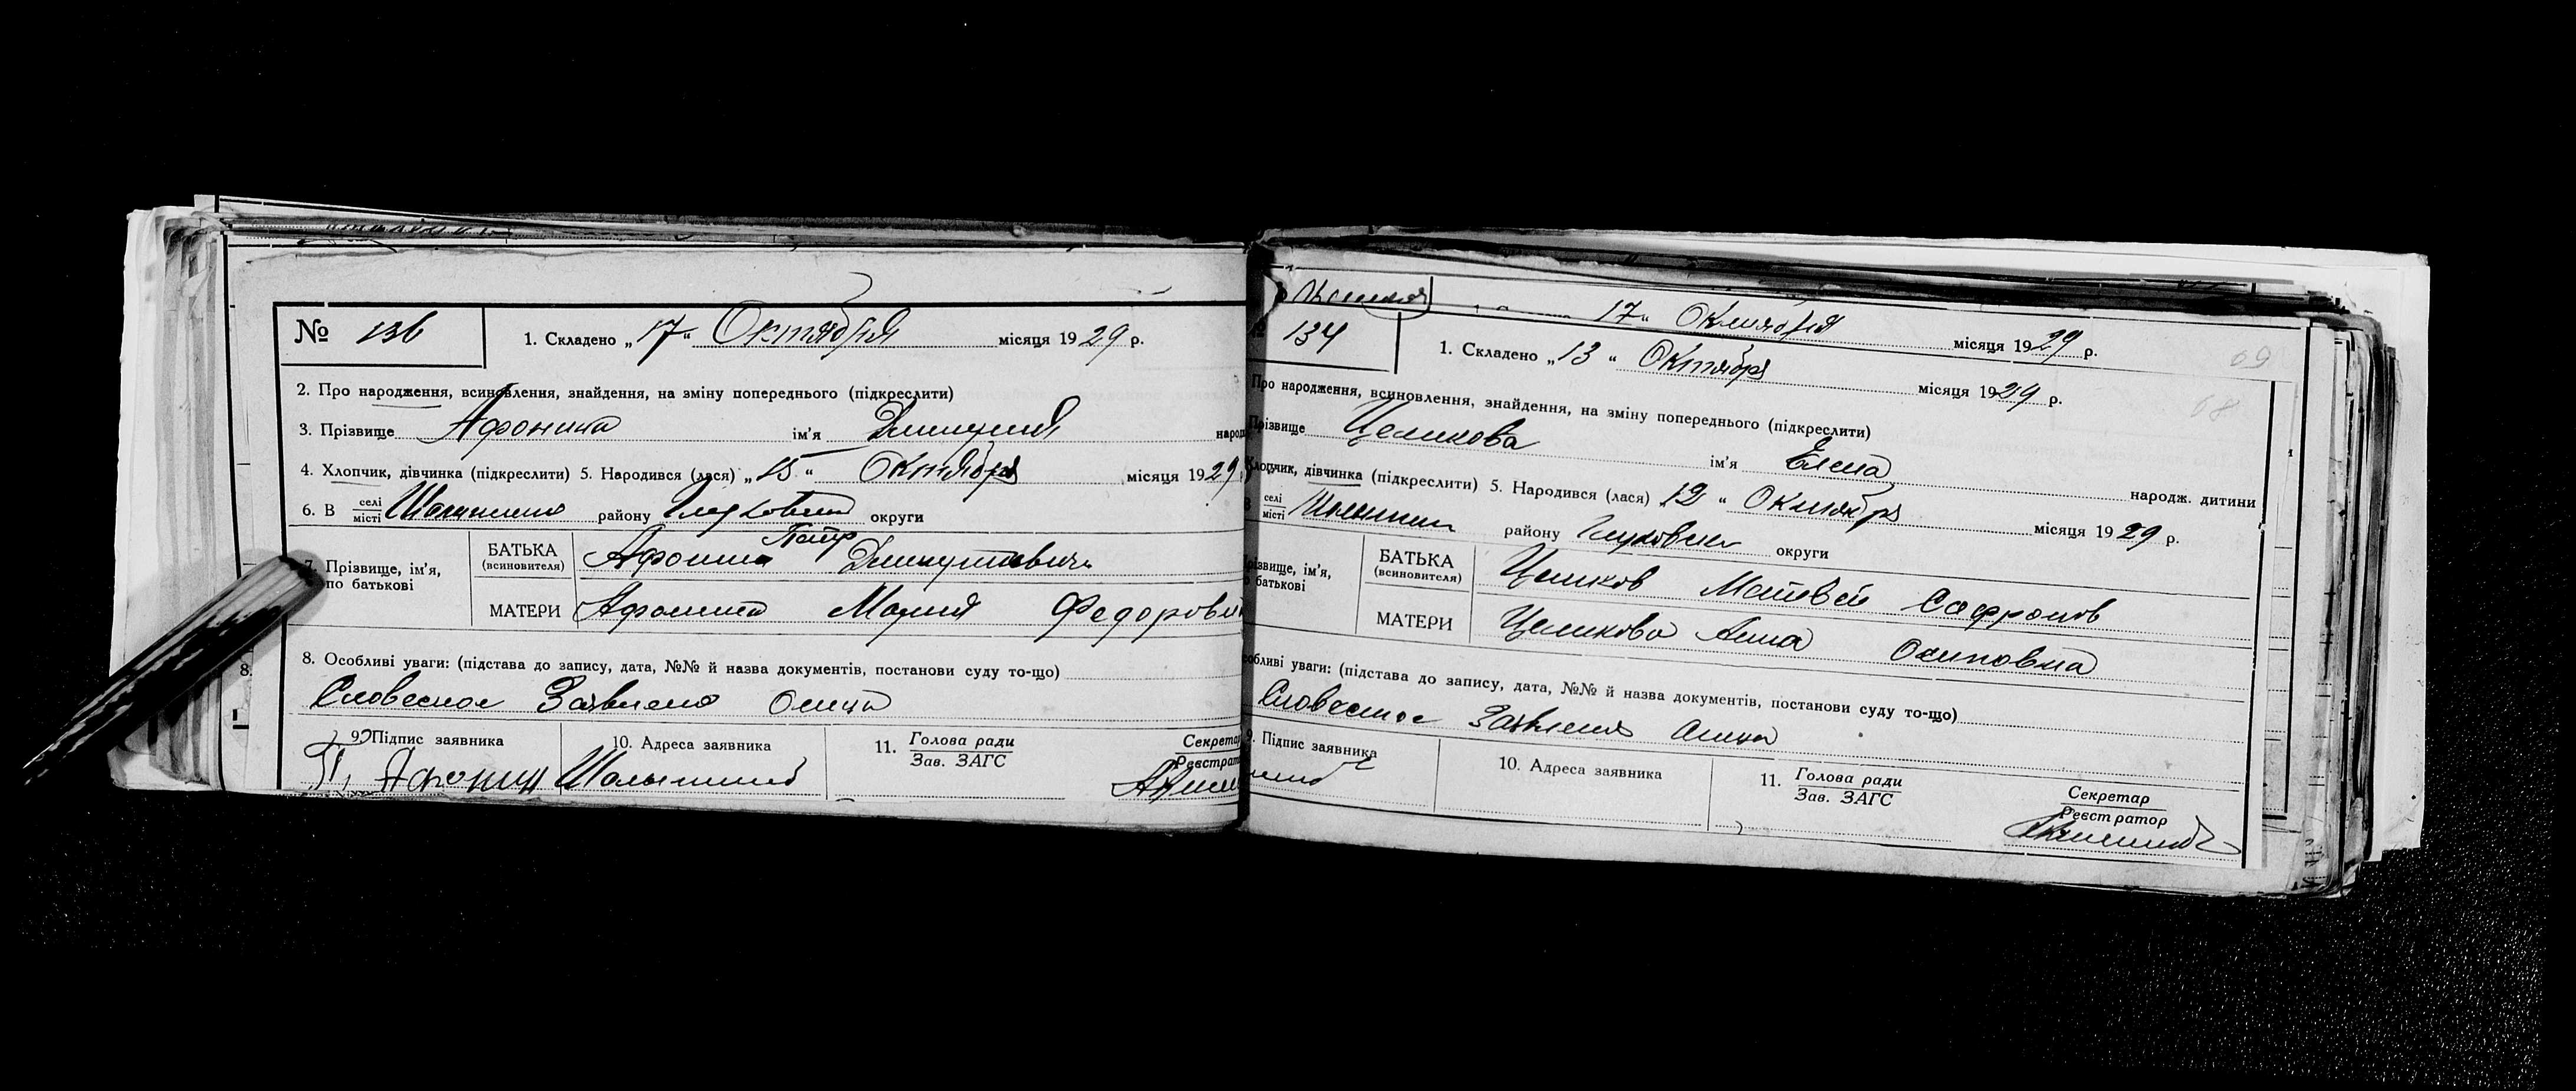 № 136
1. Складено „17“ Октября місяця 1929 р.
2. Про народження, всиновлення, знайдення, на зміну попереднього (підкреслити)
3. Прізвище Афонина ім'я Дмитрий народ
4. Хлопчик, дівчинка (підкреслити) 5. Народився (лася) „15“ Октября місяця 1929
6. В селі місті Шалыгино району Глуховский округи
7. Прізвище, ім'я, по батькові
БАТЬКА (всиновителя) Афонин Петр Дмитриевич
МАТЕРИ Афонина Мария Федоров
8. Особливі уваги: (підстава до запису, дата, №№ й назва документів, постанови суду то-що)
Словесное Заявление Отца
9. Підпис заявника 10. Адреса заявника 11. Голова ради Зав. ЗАГС Секретар Реєстрат
П. Афонин Шалыгино
8.
17“ Октября місяця 1929 р.
69
134
1. Складено „13“ Октября місяця 1929 р.
68
Про народження, всиновлення, знайдення, на зміну попереднього (підкреслити)
Прізвище Целикова ім'я Елена народж. дитини
Хлопчик, дівчинка (підкреслити) 5. Народився (лася) „12“ Октября місяця 1929 р.
В селі місті району Глуховский округи
Прізвище, ім'я, по батькові
БАТЬКА (всиновителя) Целиков Матвей Сафронов
МАТЕРИ Целикова Анна Осиповна
особливі уваги: (підстава до запису, дата, №№ й назва документів, постанови суду то-що)
Словесное Заявление Отца
9. Підпис заявника 10. Адреса заявника 11. Голова ради Зав. ЗАГС Секретар Реєстратор